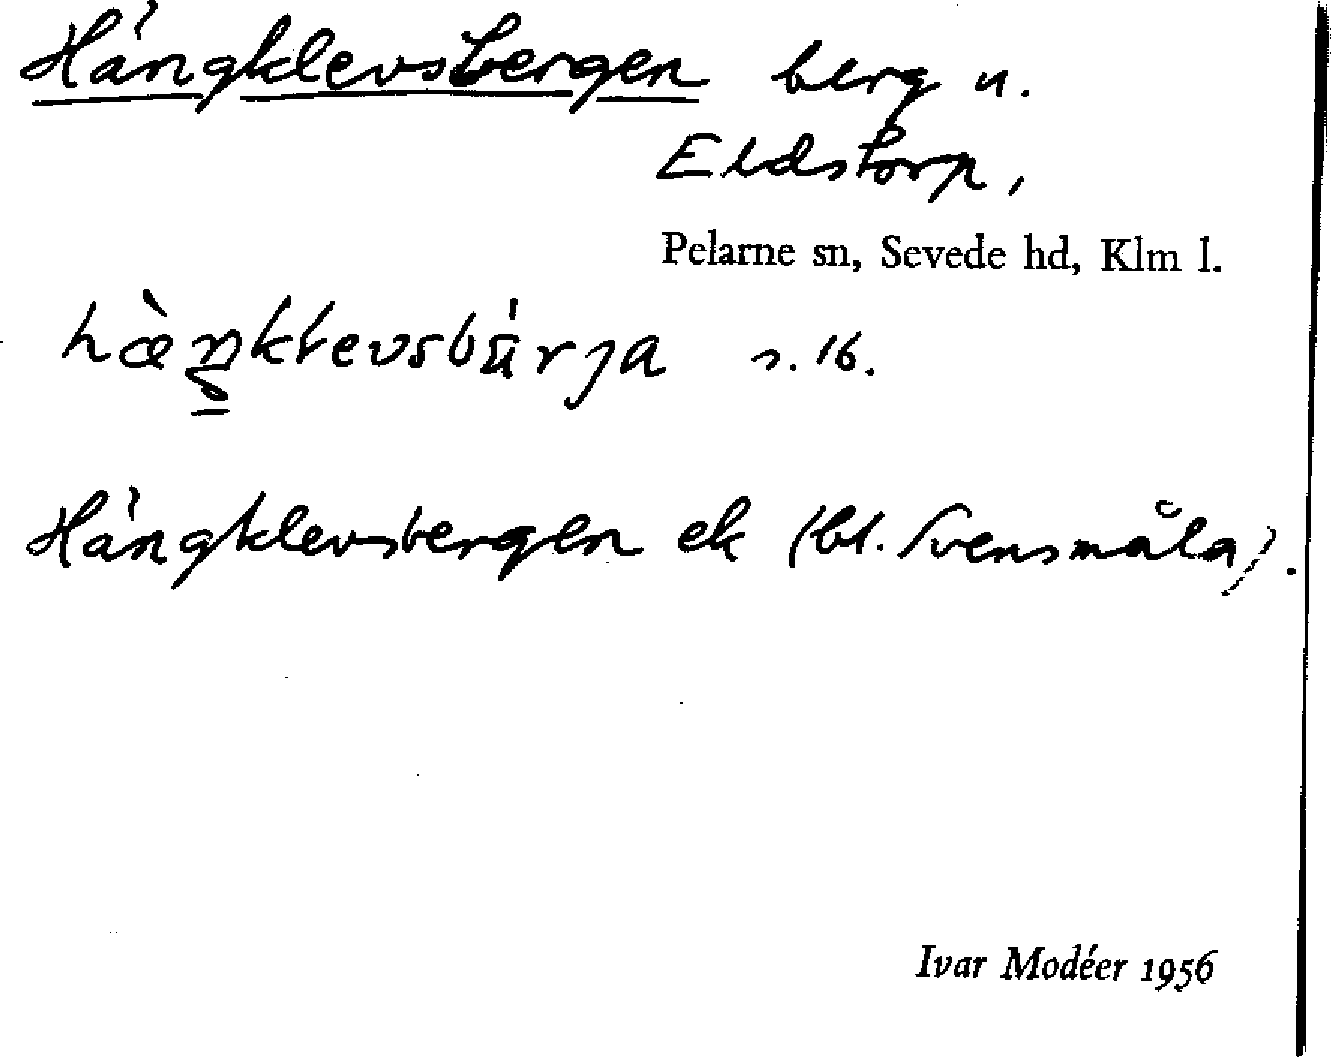 Hängklevsbergen berg u.
Eldstorp,
Pelarne sn, Sevede hd, Klm l.
s. 16.
Hängklevsbergen ek (bl. Svensmåla).
Ivar Modéer 1956